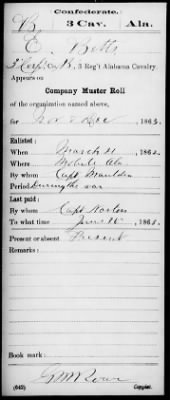 Confederate.
B 3 Cav. Ala.
E. Betts
Co. B, 3 Reg't Alabama Cavalry.
Appears on
Company Muster Roll
of the organization named above,
for Nov & Dec, 1863.
Enlisted:
When March 21, 1862.
Where Mobile Ala.
By whom Capt. Mauldin
Period During the war
Last paid:
By whom Capt.
To what time June 186
Present or absent Present
Remarks:
Book mark:
(642) Copyist.